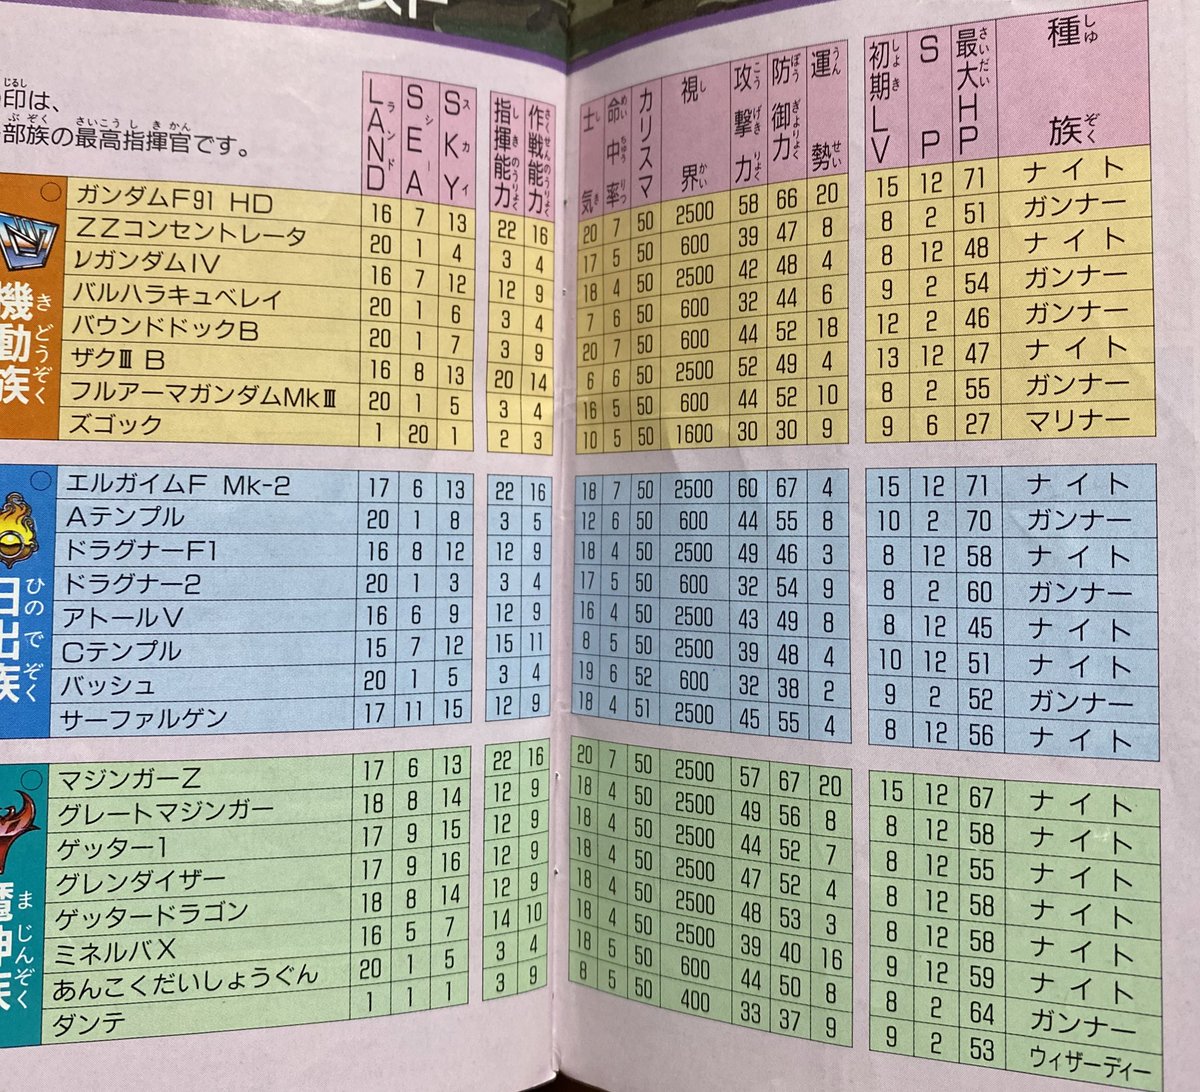 印は、
部族の最高指揮官です。
LAND SEA SKY 指揮能力 作戦能力 士気 命中率 カリスマ 視界 攻撃力 防御力 運勢 初期LV SP 最大HP 種族
機動族
○ ガンダムF91 HD 16 7 13 22 16 20 7 50 2500 58 66 20 15 12 71 ナイト
ZZコンセントレータ 20 1 4 3 4 17 5 50 600 39 47 8 8 2 51 ガンナー
νガンダムⅣ 16 7 12 12 9 18 4 50 2500 42 48 4 8 12 48 ナイト
バルハラキュベレイ 20 1 6 3 4 7 6 50 600 32 44 6 9 2 54 ガンナー
バウンドドックB 20 1 7 3 9 20 7 50 600 44 52 18 12 2 46 ガンナー
ザクⅢ B 16 8 13 20 14 6 6 50 2500 52 49 4 13 12 47 ナイト
フルアーマガンダムMkⅢ 20 1 5 3 4 16 5 50 600 44 52 10 8 2 55 ガンナー
ズゴック 1 20 1 2 3 10 5 50 1600 30 30 9 9 6 27 マリナー
日出族
○ エルガイムF Mk-2 17 6 13 22 16 18 7 50 2500 60 67 4 15 12 71 ナイト
Aテンプル 20 1 8 3 5 12 6 50 600 44 55 8 10 2 70 ガンナー
ドラグナーF1 16 8 12 12 9 18 4 50 2500 49 46 3 8 12 58 ナイト
ドラグナー2 20 1 3 3 4 17 5 50 600 32 54 9 8 2 60 ガンナー
アトールV 16 6 9 12 9 16 4 50 2500 43 49 8 8 12 45 ナイト
Cテンプル 15 7 12 15 11 8 5 50 2500 39 48 4 10 12 51 ナイト
バッシュ 20 1 5 3 4 19 6 52 600 32 38 2 9 2 52 ガンナー
サーファルゲン 17 11 15 12 9 18 4 51 2500 45 55 4 8 12 56 ナイト
魔神族
○ マジンガーZ 17 6 13 22 16 20 7 50 2500 57 67 20 15 12 67 ナイト
グレートマジンガー 18 8 14 12 9 18 4 50 2500 49 56 8 8 12 58 ナイト
ゲッター1 17 9 15 12 9 18 4 50 2500 44 52 7 8 12 55 ナイト
グレンダイザー 17 9 16 12 9 18 4 50 2500 47 52 4 8 12 58 ナイト
ゲッタードラゴン 18 8 14 12 9 18 4 50 2500 48 53 3 8 12 58 ナイト
ミネルバX 16 5 7 14 10 18 4 50 2500 39 40 16 9 12 59 ナイト
あんこくだいしょうぐん 20 1 5 3 4 18 5 50 600 44 50 8 8 2 64 ガンナー
ダンテ 1 1 1 3 9 8 5 50 400 33 37 9 9 2 53 ウィザーディー